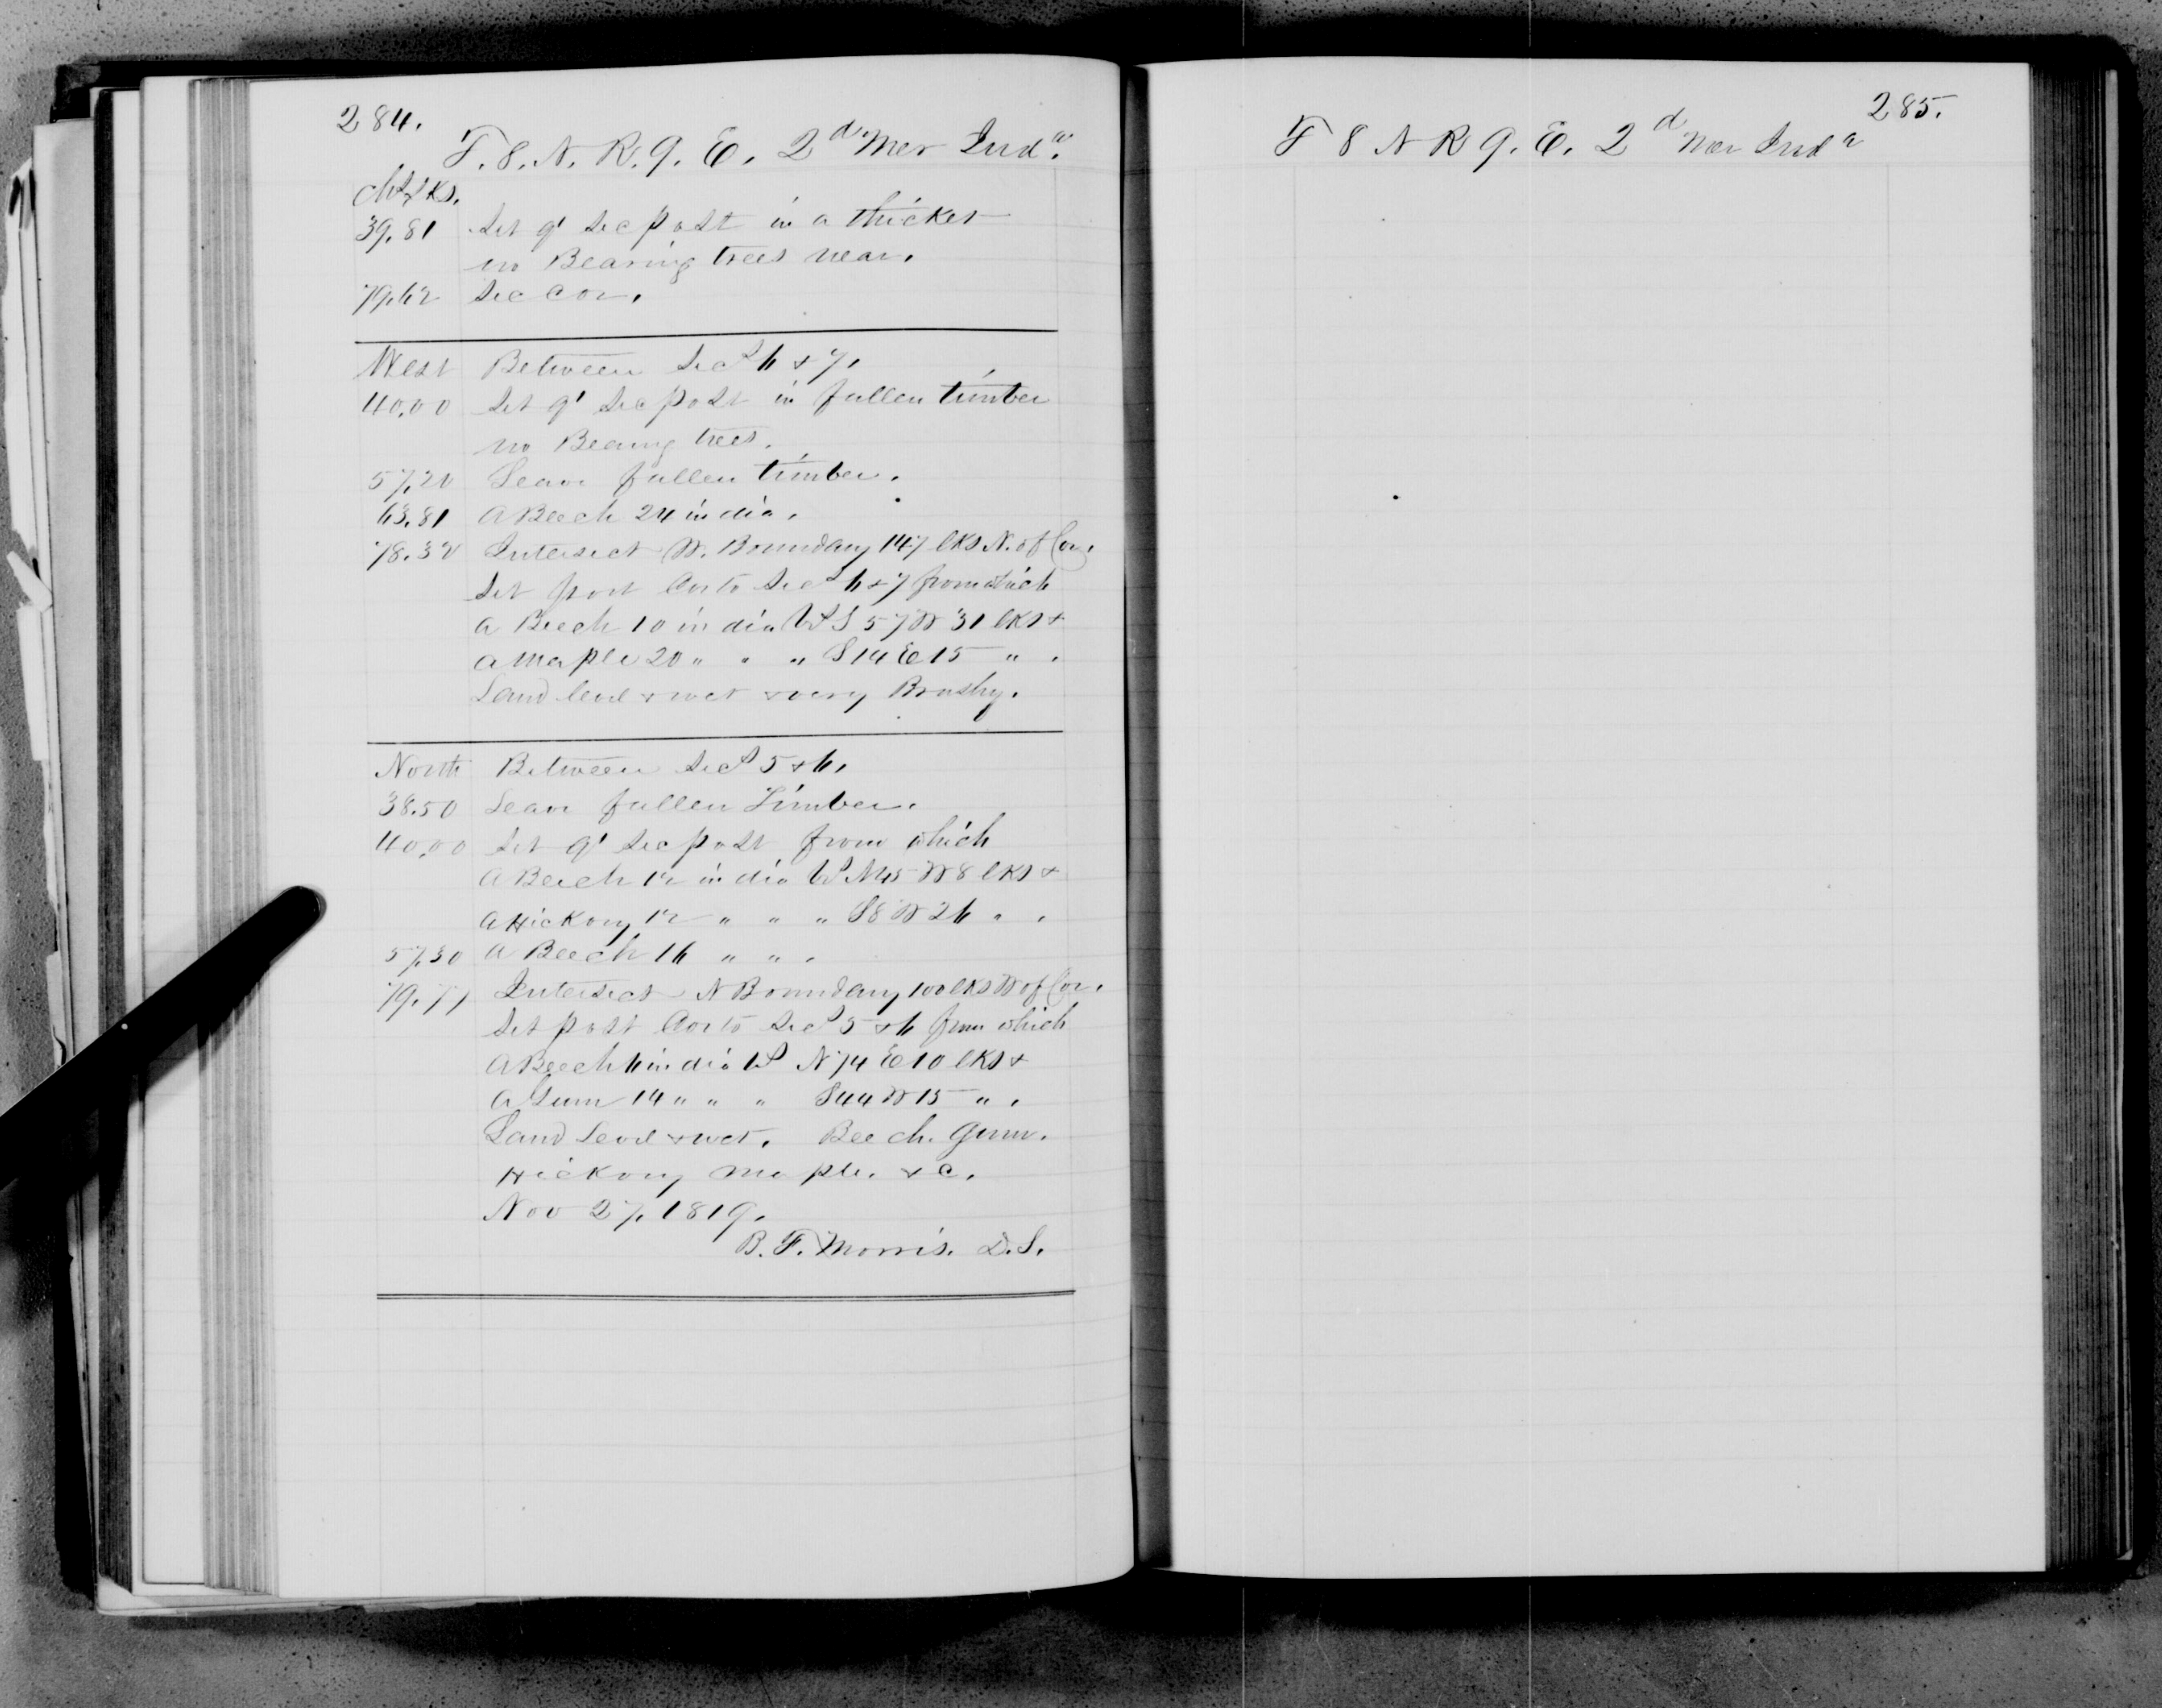 284.
T. 8. N. R. 9. E. 2d Mer Inda.
Chs Lks.
39.81 Set qr Sec post in a thicket
no Bearing trees near.
79.62 Sec Cor.
West Between Secs 6 & 7.
40.00 Set qr Sec post in fallen timber
no Bearing trees.
57.20 Leave fallen timber.
63.81 A Beech 24 in dia.
78.32 Intersect W. Boundary 147 lks N. of Cor.
Set post Cor to Secs 6 & 7 from which
a Beech 10 in dia bs S 57 W 31 lks &
a Maple 20 " " " S 14 E 15 " .
Land level & wet & very Brushy.
North Between Secs 5 & 6.
38.50 Leave fallen Timber.
40.00 Set qr Sec post from which
A Beech 12 in dia bs N45 W 8 lks &
a Hickory 12 " " " S8 W 26 " .
57.30 A Beech 16 " " .
79.77 Intersect N Boundary 100 lks W of Cor.
Set post Cor to Secs 5 & 6 from which
A Beech 6 in dia bs N 74 E 10 lks &
A Gum 14 " " " S44 W 15 " .
Land Level & wet. Beech. Gum.
Hickory Maple. &c.
Nov 27. 1819.
B. F. Morris. D.S.
285.
T 8 N R 9. E. 2d Mer Inda